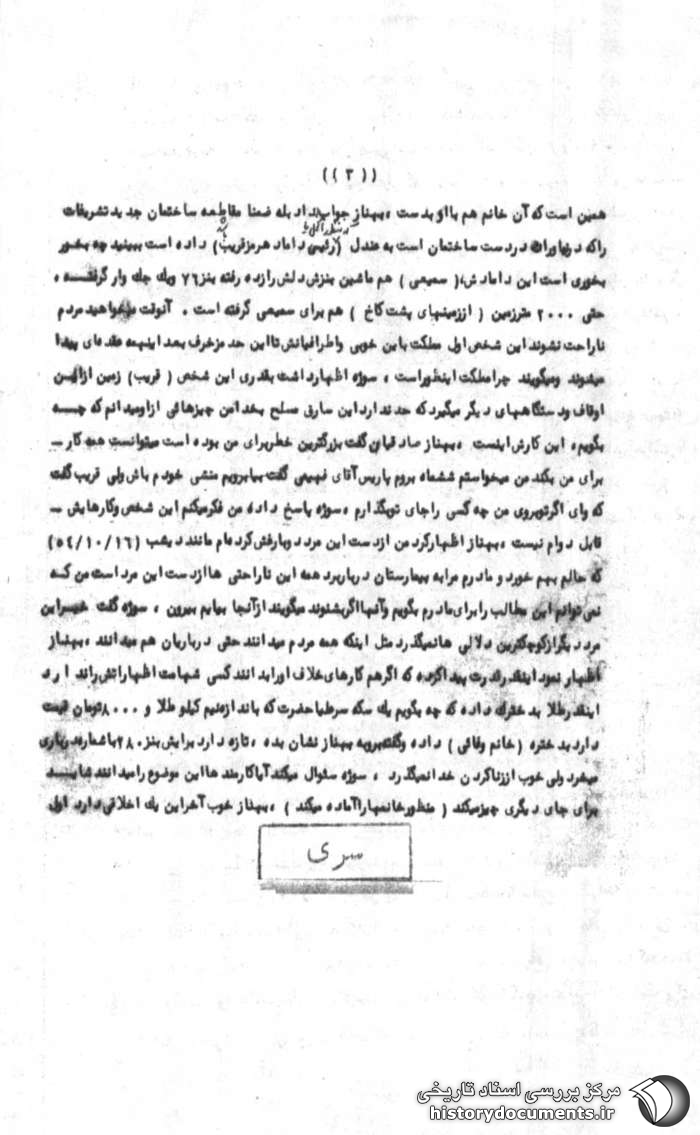 ((۳))
همین است که آن خانم هم با او بد ست ، بهناز جواب میداد بله ضمنا مقاطعه ساختمان جدید تشریفات
را که در نیاوران در دست ساختمان است به عندل (رئیس داماد هرمز قریب) داده است ببینید چه بخور
بخوری است این دامادش ( سمیعی ) هم ماشین بنزش دلش را زده رفته بنز ۲۷ ویک جك وار گرفتـه ،
حتی ۲۰۰۰ مترزمین ( اززمینهای پشت کاخ ) هم برای سمیعی گرفته است . آنوقت میخواهید مردم
ناراحت نشوند این شخص اول مملکت باین خوبی واطرافیانش تا این حد مزخرف بعد اینهمه عقده ای پیدا
میشوند ومیگویند چرا مملکت اینطور است ، سوژه اظهارداشت بقدری این شخص ( قریب ) زمین ازایـن
اوقاف ود ستگاههای دیگر میگیرد که حد ندارد این سارق مسلح بخدا من چیزهائی ازاو میدانم که چــه
بگویم ، این کارش اینست ، بهناز صادقیان گفت بزرگترین خطر برای من بوده است میتوانست همه کار ـ
برای من بکند من میخواستم ششماه بروم پاریس آقای فهیمی گفت بیا برویم منشی خودم باش ولی قریب گفت
که وای اگر تو بروی من چه کسی را جای تو بگذارم ، سوژه پاسخ داد ، من فکر میکنم این شخص وکارهایش ـ
قابل دوام نیست ، بهناز اظهارکرد من ازدست این مرد دوبار غش کرده ام مانند دیشب (۵۴/۱۰/۱۶)
که حالم بهم خورد و مادرم مرا به بیمارستان دربار برد همه این ناراحتی ها ازدست این مرد است من کــه
نمی توانم این مطالب را برای مادرم بگویم وآنها اگر بشنوند میگویند ازآنجا بیا بیم بیرون ، سوژه گفت خیـر این
مرد دیگر از کوچکترین دلالی ها نمیگذرد مثل اینکه همه مردم میدانند حتی درباریان هم میدانند ، بهناز
اظهار نمود اینقدر قدرت پیدا کرده که اگر هم کارهای خلاف اورا بدانند کسی شهامت اظهاراتش را ندارد
اینقدر طلا به دخترك داده که چه بگویم یك سکه سرطیاحضرت که باندازه نیم کیلو طلا و ۸۰۰۰ تومان قیمت
دارد بدختره ( خانم وفائی ) داده وگفته برو به بهناز نشان بده ، تازه دارد برایش بنز ۲۸۰ با شماره درباری
میخرد ولی خوب از زنا کردن خدا نمیگذرد ، سوژه سئوال میکند آیا کارمند ها این موضوع را میدانند شایــد
برای جای دیگری چیز میکند ( منظور خانمها را آماده میکند ) ، بهناز خوب آخر این یك اخلاقی دارد اول
سری
مرکز بررسی اسناد تاریخی
historydocuments.ir